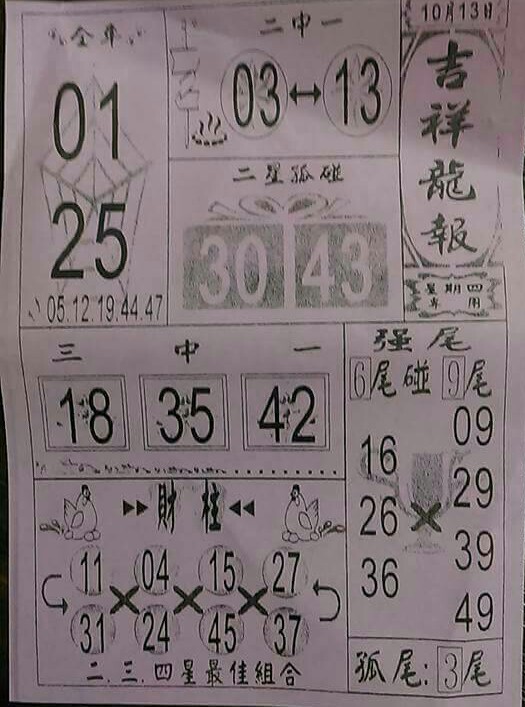 10月13日
吉祥龍報
星期四
專用
全車
01
25
05.12.19.44.47
二中一
03↔13
二星孤碰
30 43
三中一
18 35 42
强尾
6尾碰9尾
16
26
36
×
09
29
39
49
孤尾:3尾
▸▸財柱◂◂
11 04 15 27
× × ×
31 24 45 37
二.三.四星最佳組合